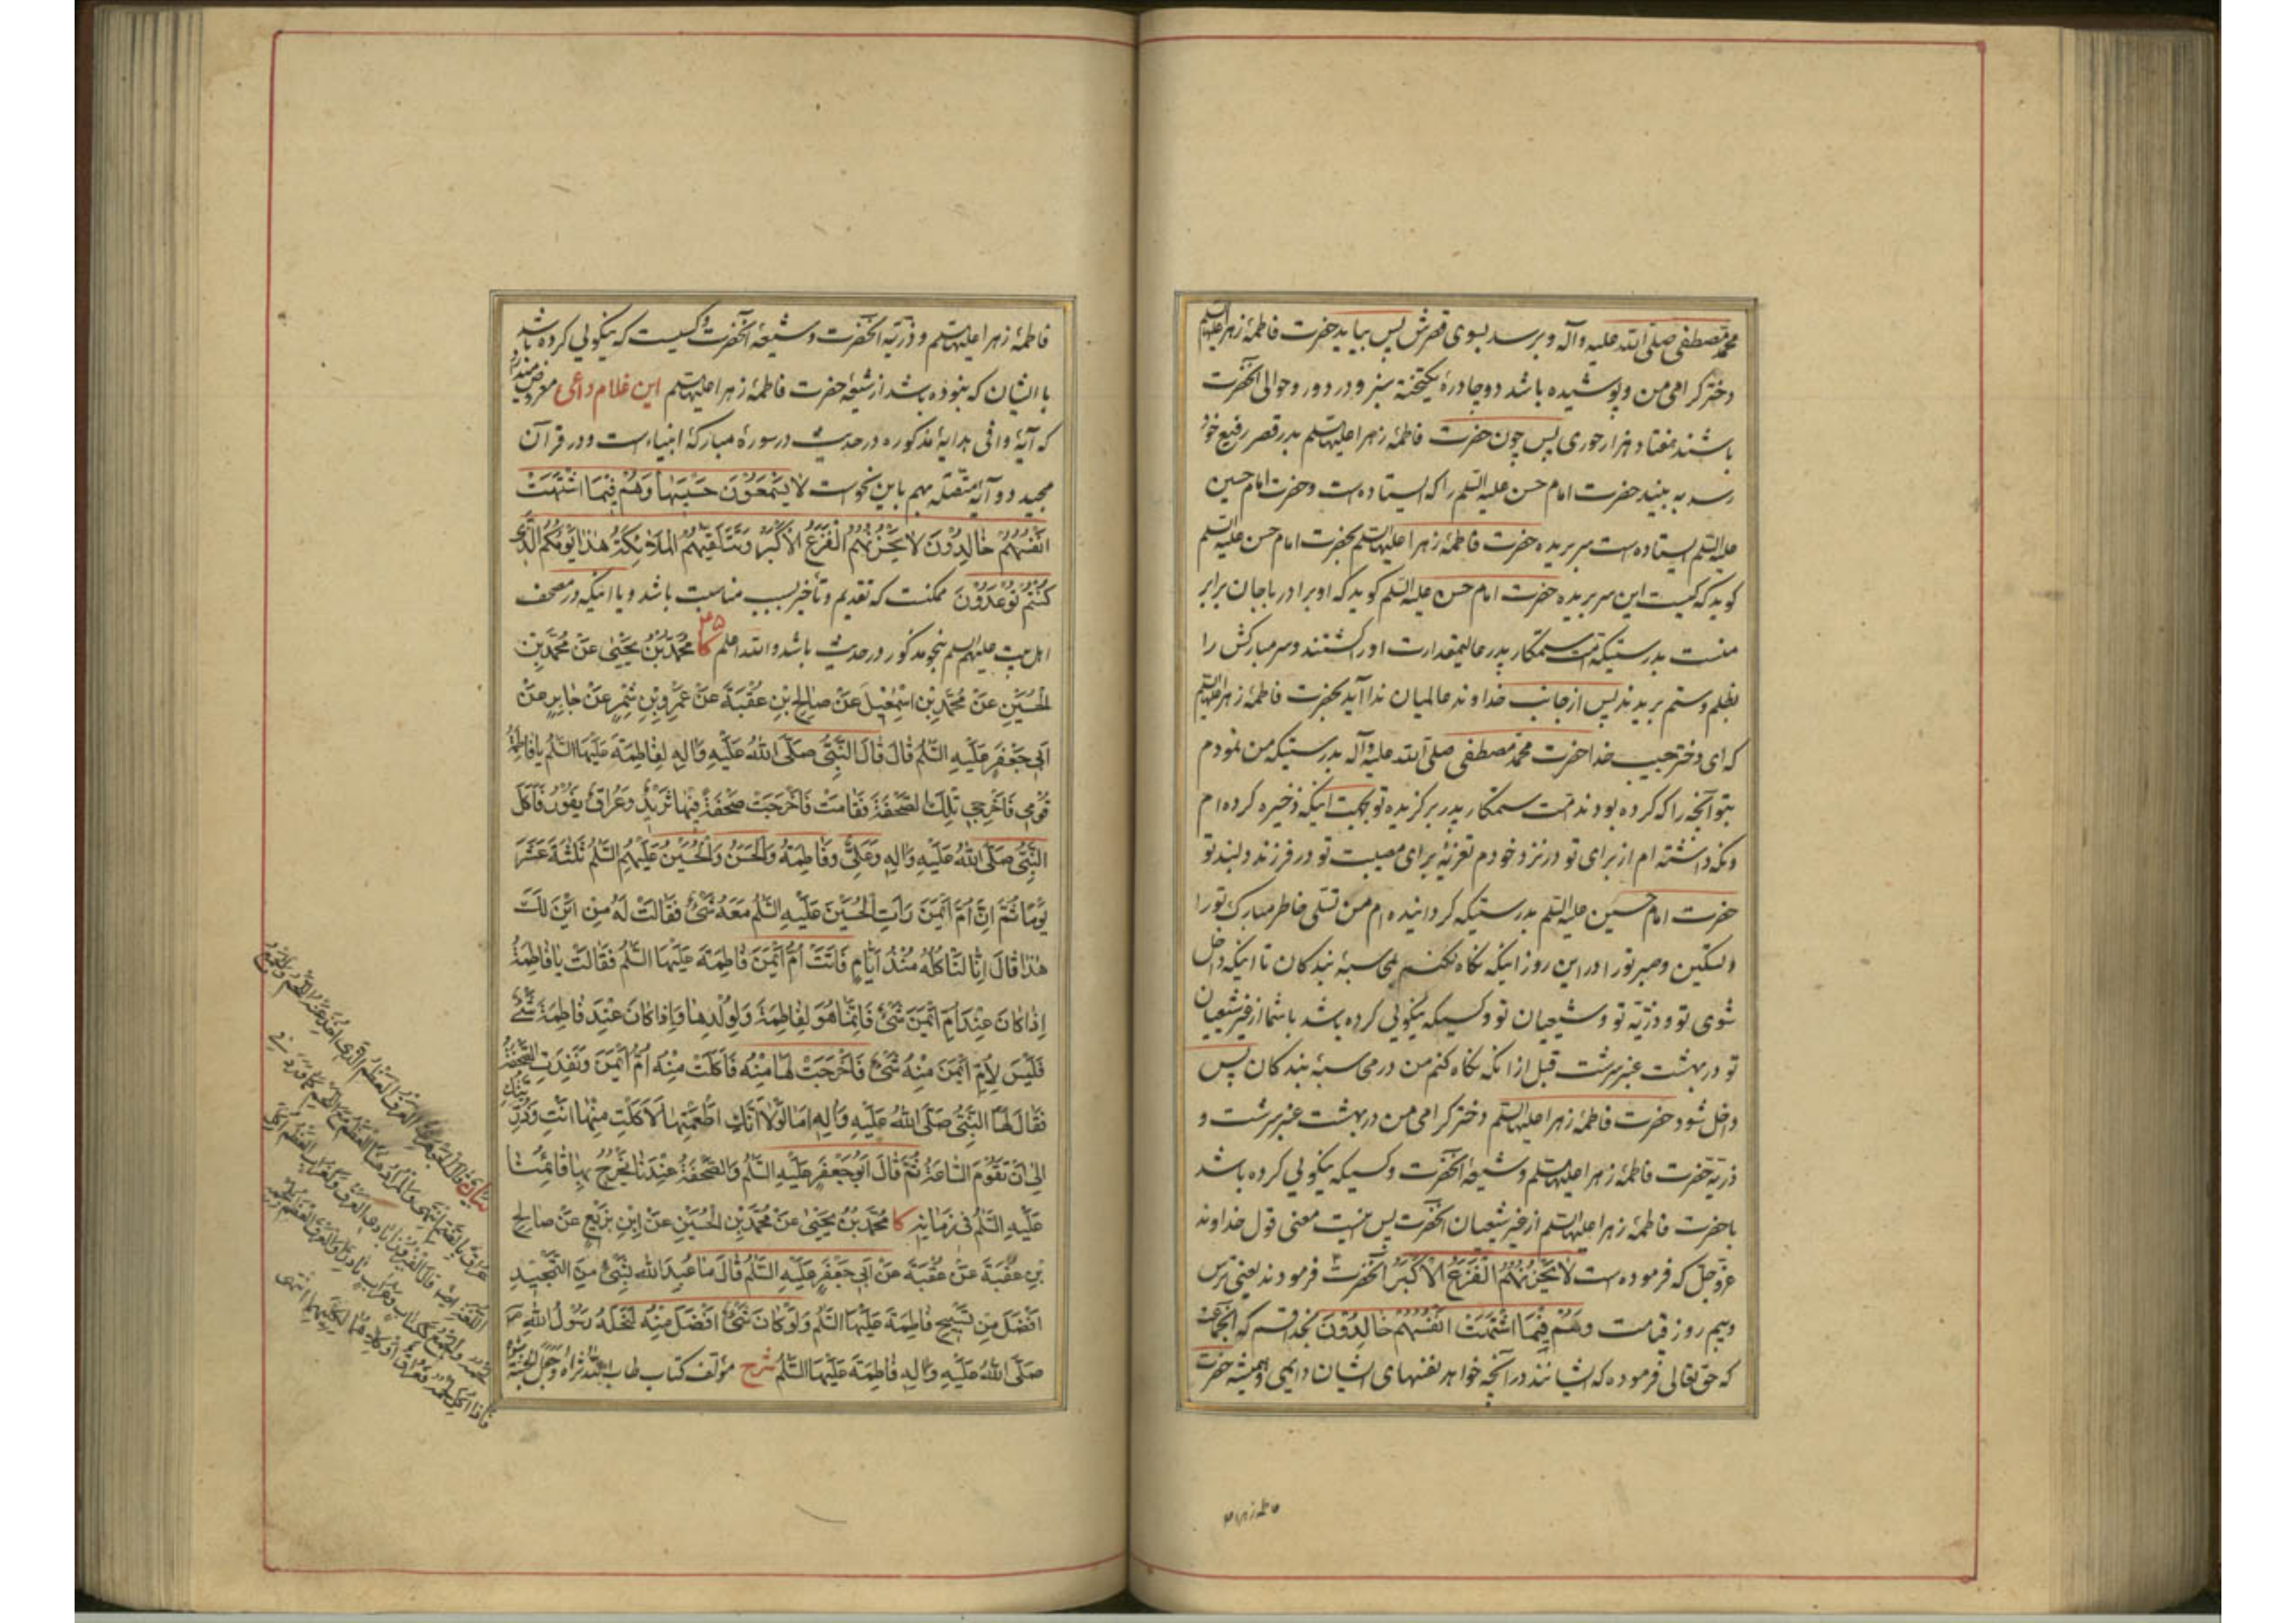 محمد مصطفی صلی الله علیه وآله و برسد بسوی قصرش پس بیاید حضرت فاطمهٔ زهرا علیها السلم
دختر کرامی من و پوشیده باشد دو چادرهٔ یکتخته سبز و در دور و حوالی آنحضرت
باشند هفتاد هزار حوری پس چون حضرت فاطمهٔ زهرا علیها السلم بدر قصر رفیع خود
رسد به بیند حضرت امام حسن علیه السلم را که ایستاده است و حضرت امام حسین
علیه السلم ایستاده است سر بریده حضرت فاطمهٔ زهرا علیها السلم بحضرت امام حسن علیه السلم
کوید که کیست این سر بریده حضرت امام حسن علیه السلم کوید که او برادر باجان برابر
منست بدرستیکه امت ستمکار پدر عالیمقدارت او را کشتند و سر مبارکش را
بظلم و ستم بریدند پس از جانب خداوند عالمیان ندا آید بحضرت فاطمهٔ زهرا علیها السلم
که ای دختر حبیب خدا حضرت محمد مصطفی صلی الله علیه وآله بدرستیکه من نمودم
بتو آنچه را که کرده بودند امت ستمکار پدر برکزیده تو بجهت اینکه ذخیره کرده ام
و نکه داشته ام از برای تو در نزد خودم تعزیهٔ برای مصیبت تو در فرزند دلبند تو
حضرت امام حسین علیه السلم بدرستیکه کردانیده ام من تسلی خاطر مبارک تو را
و تسکین و صبر تو را در این روز اینکه نکاه نکنم بمحاسبهٔ بندکان تا اینکه داخل
شوی تو و ذریّه تو و شیعیان تو و کسیکه نیکویی کرده باشد باشما از غیر شیعیان
تو در بهشت عنبر سرشت قبل از انکه نکاه کنم من در محاسبهٔ بندکان پس
داخل شود حضرت فاطمهٔ زهرا علیها السلم دختر کرامی من در بهشت عنبر سرشت و
ذریّه حضرت فاطمهٔ زهرا علیها السلم و شیعهٔ آنحضرت و کسیکه نیکویی کرده باشد
باحضرت فاطمهٔ زهرا علیها السلم از غیر شیعیان آنحضرت پس منیت معنی قول خداوند
عزّوجل که فرموده است لَا یَحْزُنُهُمُ الْفَزَعُ الْاَکْبَرُ آنحضرت فرمودند یعنی ترس
و بیم روز قیامت وَهُمْ فِیمَا اشْتَهَتْ اَنْفُسُهُمْ خَالِدُوْنَ بخدا قسم که آنجماعت
که حق تعالی فرموده که ایشانند در آنچه خواهد نفسهای ایشان دایمی و همیشه حضرت
فاطمه زهرا
فاطمهٔ زهرا علیها السلم و ذریّه آنحضرت و شیعهٔ آنحضرت و کسیست که نیکویی کرده باشد
با ایشان که نبوده باشد از شیعهٔ حضرت فاطمهٔ زهرا علیها السلم این غلام داعی معروض میدارد
که آیهٔ وافی هدایهٔ مذکوره در حدیث در سورهٔ مبارکهٔ انبیاء است و در قرآن
مجید دو آیهٔ متصله بهم باین نحو است لَا یَسْمَعُوْنَ حَسِیْسَهَا وَهُمْ فِیْمَا اشْتَهَتْ
اَنْفُسُهُمْ خَالِدُوْنَ لَا یَحْزُنُهُمُ الْفَزَعُ الْاَکْبَرُ وَتَتَلَقّٰیهُمُ الْمَلَائِکَةُ هٰذَا یَوْمُکُمُ الَّذِی
کُنْتُمْ تُوْعَدُوْنَ ممکنست که تقدیم و تأخیر بسبب مناسبت باشد و یا اینکه در مصحف
اهل بیت علیهم السلم بنحو مذکور در حدیث باشد والله اعلم کا مُحَمَّدُ بْنُ یَحْیٰی عَنْ مُحَمَّدِ بْنِ
الْحُسَیْنِ عَنْ مُحَمَّدِ بْنِ اِسْمٰعِیْلَ عَنْ صَالِحِ بْنِ عُقْبَةَ عَنْ عَمْرِو بْنِ شِمْرٍ عَنْ جَابِرٍ عَنْ
اَبِی جَعْفَرٍ عَلَیْهِ السَّلَمُ قَالَ قَالَ النَّبِیُّ صَلَّی اللهُ عَلَیْهِ وَاٰلِهِ لِفَاطِمَةَ عَلَیْهَا السَّلَمُ یَا فَاطِمَةُ
قُوْمِی فَاَخْرِجِی تِلْکَ الصَّحْفَةَ فَقَامَتْ فَاَخْرَجَتْ صَحْفَةً فِیْهَا ثَرِیْدٌ وَعُرَاقٌ یَفُوْرُ فَاَکَلَ
النَّبِیُّ صَلَّی اللهُ عَلَیْهِ وَاٰلِهِ وَعَلِیٌّ وَفَاطِمَةُ وَالْحَسَنُ وَالْحُسَیْنُ عَلَیْهِمُ السَّلَمُ ثَلٰثَةَ عَشَرَ
یَوْمًا ثُمَّ اِنَّ اُمَّ اَیْمَنَ رَاَتِ الْحُسَیْنَ عَلَیْهِ السَّلَمُ مَعَهُ شَیْءٌ فَقَالَتْ لَهُ مِنْ اَیْنَ لَکَ
هٰذَا قَالَ اِنَّا لَنَاْکُلُهُ مُنْذُ اَیَّامٍ فَاَتَتْ اُمُّ اَیْمَنَ فَاطِمَةَ عَلَیْهَا السَّلَمُ فَقَالَتْ یَا فَاطِمَةُ
اِذَا کَانَ عِنْدَ اُمِّ اَیْمَنَ شَیْءٌ فَاِنَّمَا هُوَ لِفَاطِمَةَ وَلِوُلْدِهَا وَاِذَا کَانَ عِنْدَ فَاطِمَةَ شَیْءٌ
فَلَیْسَ لِاُمِّ اَیْمَنَ مِنْهُ شَیْءٌ فَاَخْرَجَتْ لَهَا مِنْهُ فَاَکَلَتْ مِنْهُ اُمُّ اَیْمَنَ وَنَفِدَتِ الصَّحْفَةُ
فَقَالَ لَهَا النَّبِیُّ صَلَّی اللهُ عَلَیْهِ وَاٰلِهِ اَمَا لَوْلَا اَنَّکِ اَطْعَمْتِهَا لَاَکَلْتِ مِنْهَا اَنْتِ وَذُرِّیَّتُکِ
اِلٰی اَنْ تَقُوْمَ السَّاعَةُ ثُمَّ قَالَ اَبُوْ جَعْفَرٍ عَلَیْهِ السَّلَمُ وَالصَّحْفَةُ عِنْدَنَا یَخْرُجُ بِهَا قَائِمُنَا
عَلَیْهِ السَّلَمُ فِی زَمَانِهِ کا مُحَمَّدُ بْنُ یَحْیٰی عَنْ مُحَمَّدِ بْنِ الْحُسَیْنِ عَنْ اِبْنِ بَزِیْعٍ عَنْ صَالِحِ
بْنِ عُقْبَةَ عَنْ عُقْبَةَ عَنْ اَبِی جَعْفَرٍ عَلَیْهِ السَّلَمُ قَالَ مَا عُبِدَ اللهُ بِشَیْءٍ مِنَ التَّمْجِیْدِ
اَفْضَلَ مِنْ تَسْبِیْحِ فَاطِمَةَ عَلَیْهَا السَّلَمُ وَلَوْ کَانَ شَیْءٌ اَفْضَلَ مِنْهُ لَنَحَلَهُ رَسُوْلُ اللهِ
صَلَّی اللهُ عَلَیْهِ وَاٰلِهِ فَاطِمَةَ عَلَیْهَا السَّلَمُ شرح مؤلف کتاب طاب الله ثراه وجعل الجنة مثواه